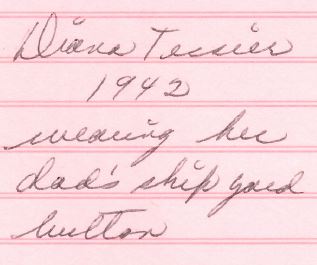 Diana Tessier
1942
wearing her
dad's ship yard
button